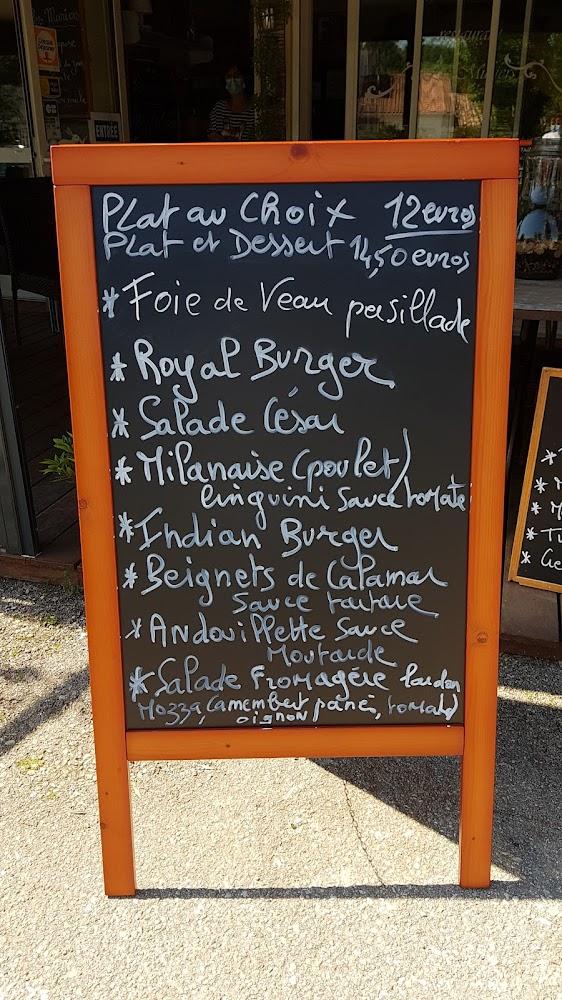 ENTREE
restaurant
Plat au Choix 12 euros
Plat et Dessert 14,50 euros
* Foie de Veau persillade
* Royal Burger
* Salade César
* Milanaise (poulet)
linguini Sauce tomate
* Indian Burger
* Beignets de Calamar
Sauce tartare
* Andouillette Sauce
Moutarde
* Salade Fromagère lardon
Mozza, Camembert panés, tomate)
oignon